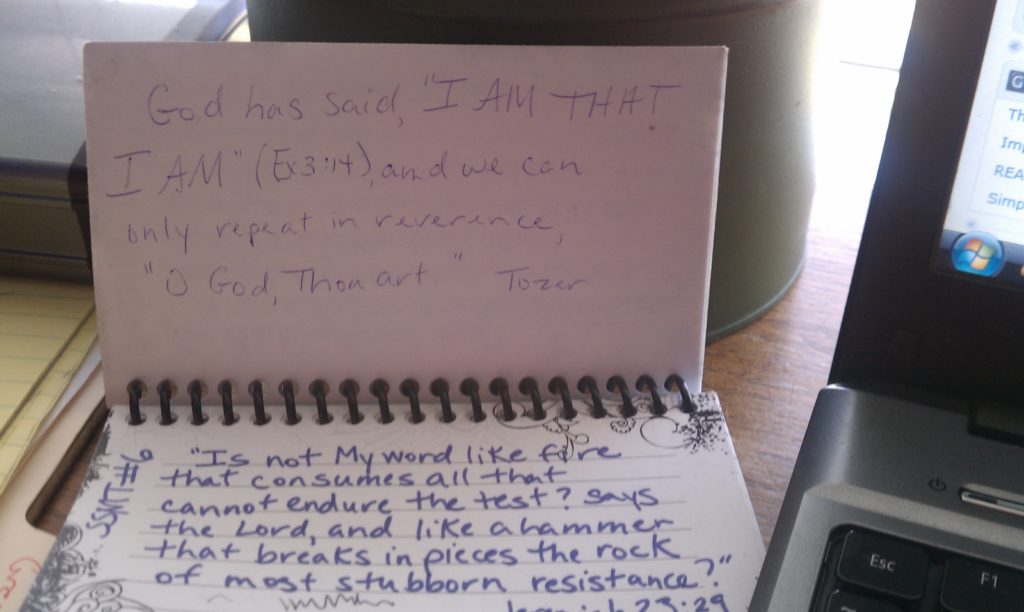 God has said, "I AM THAT
I AM" (Ex 3:14), and we can
only repeat in reverence,
"O God, Thou art." Tozer
SSNT#6
"Is not My word like fire
that consumes all that
cannot endure the test? says
the Lord, and like a hammer
that breaks in pieces the rock
of most stubborn resistance?"
23:29
Th
Imp
REA
Simp
Esc
F1